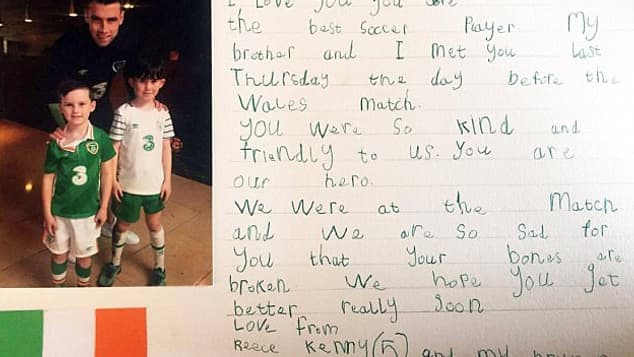 I Love you you are
the best soccer Player. My
brother and I met you last
Thursday the day before the
Wales match.
you were so kind and
friendly to us. You are
our hero.
We were at the Match
and We are so sad for
You that Your bones are
broken. We hope You get
better really soon
Love from
Reece Kenny (5) and my
3
3